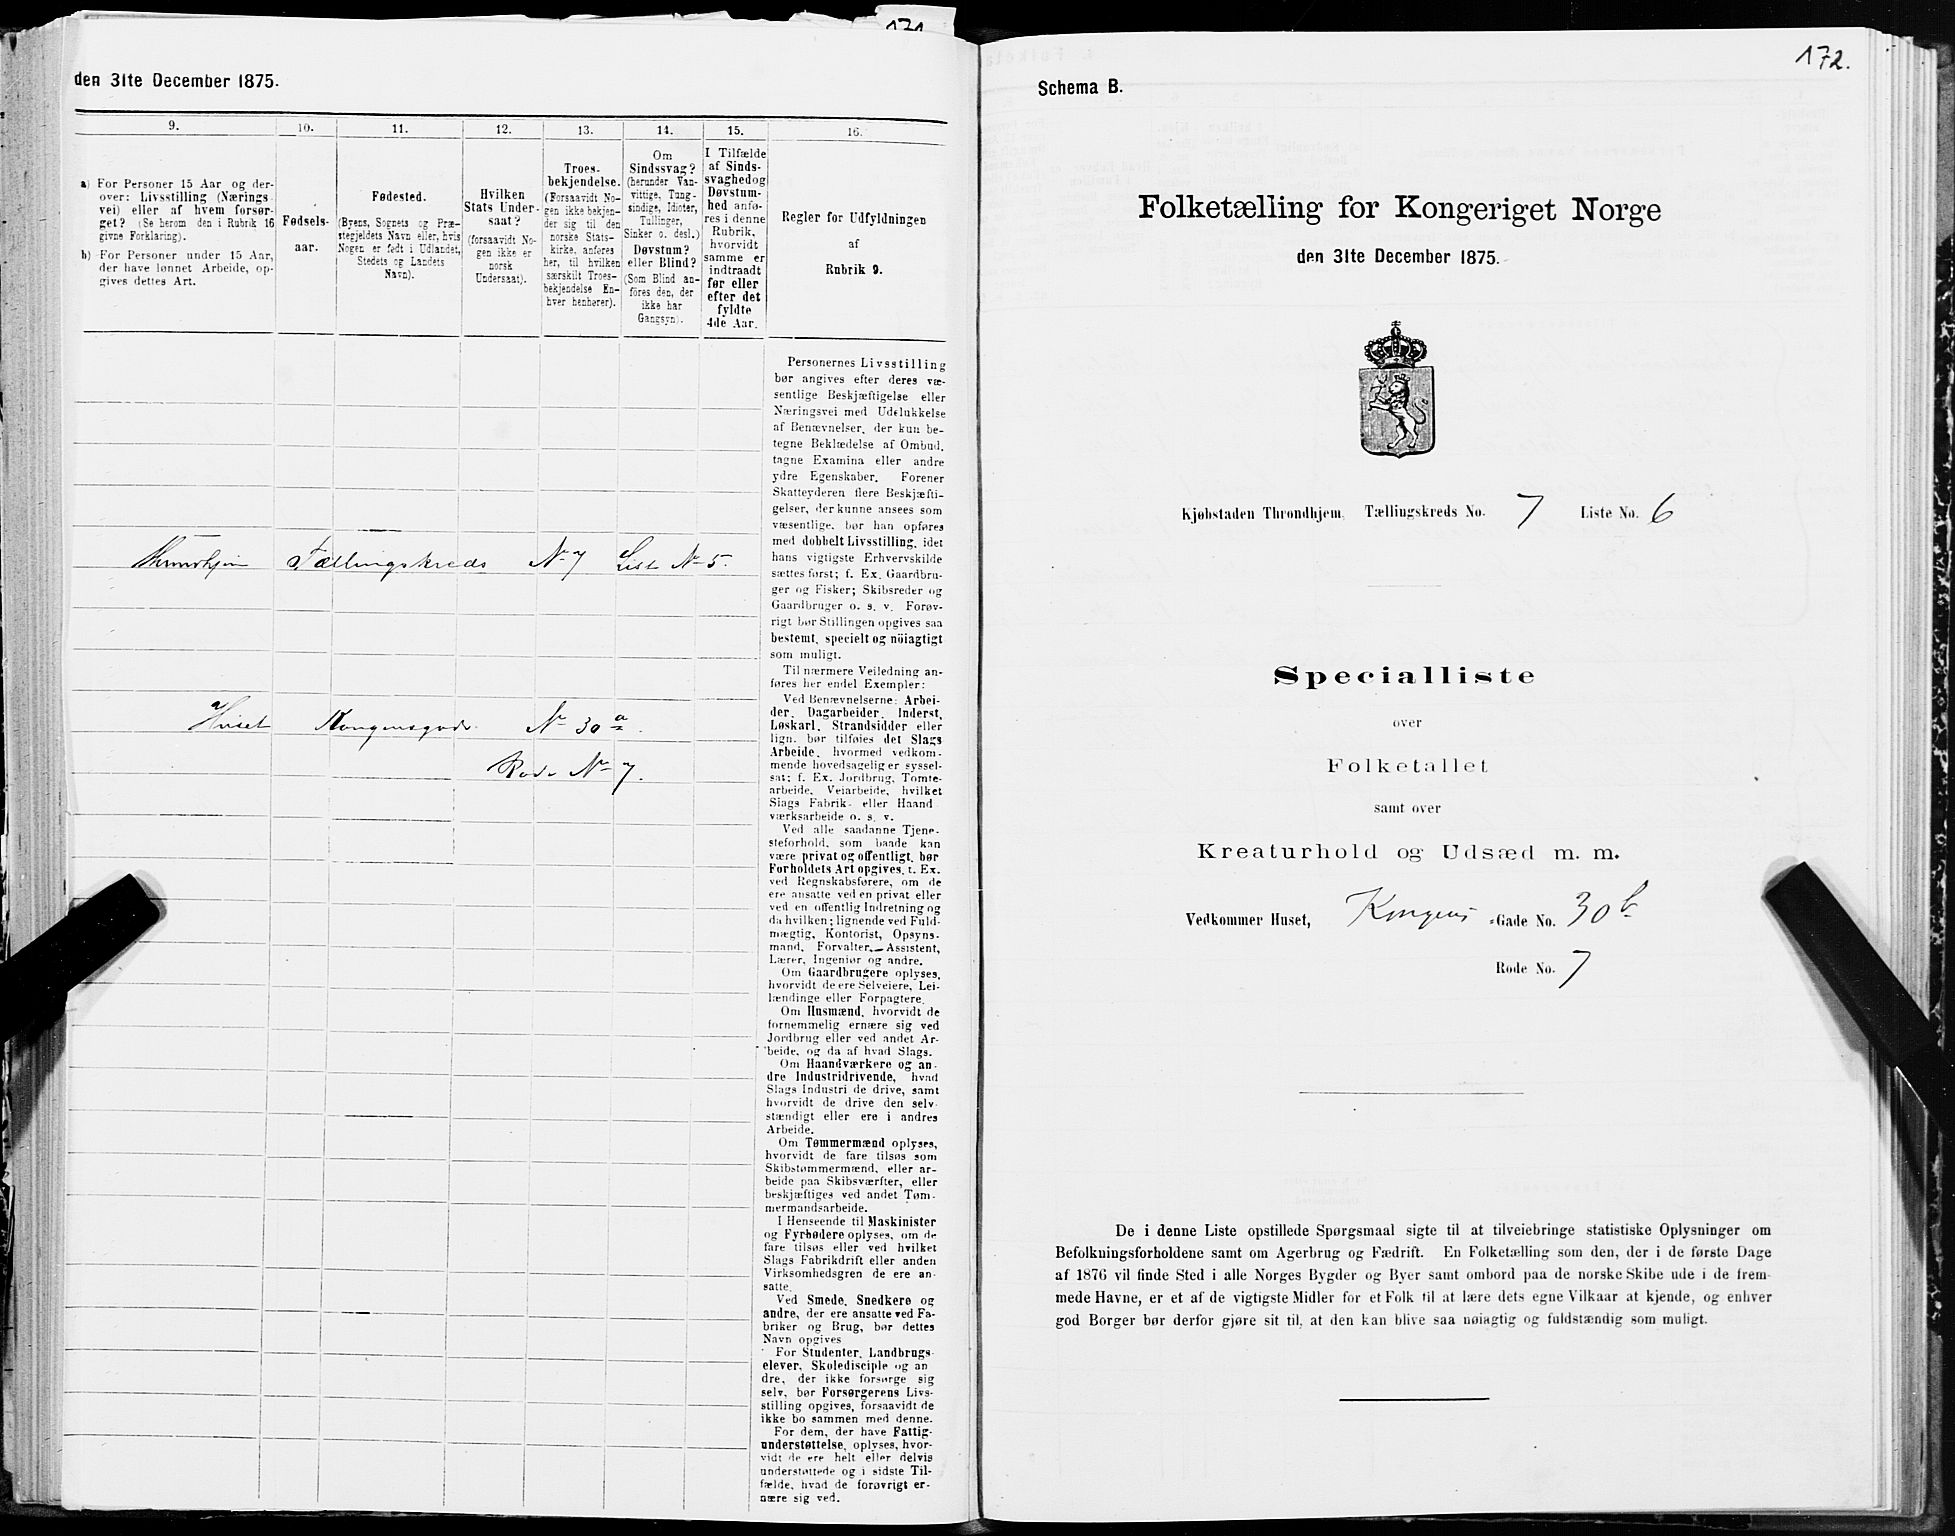 171
den 31te December 1875.
9.
10.
11.
12.
13.
14.
15.
16.
a) For Personer 15 Aar og der-
over: Livsstilling (Nærings-
vei) eller af hvem forsør-
get? (Se herom den i Rubrik 16
givne Forklaring).
b) For Personer under 15 Aar,
der have lønnet Arbeide, op-
gives dettes Art.
Fødsels-
aar.
Fødested.
(Byens, Sognets og Præ-
stegjeldets Navn eller, hvis
Nogen er født i Udlandet,
Stedets og Landets
Navn).
Hvilken
Stats Under-
saat?
(forsaavidt No-
gen ikke er
norsk
Undersaat).
Troes-
bekjendelse.
(Forsaavidt No-
gen ikke bekjen-
der sig til den
norske Stats-
kirke, anføres
her, til hvilken
særskilt Troes-
bekjendelse En-
hver henhører).
Om
Sindssvag?
(herunder Van-
vittige, Tung-
sindige, Idioter,
Tullinger,
Sinker o. desl.)
Døvstum?
eller Blind?
(Som Blind an-
føres den, der
ikke har
Gangsyn).
I Tilfælde
af Sinds-
svaghed og
Døvstum-
hed anfø-
res i denne
Rubrik,
hvorvidt
samme er
indtraadt
før eller
efter det
fyldte
4de Aar.
Regler for Udfyldningen
af
Rubrik 9.
Personernes Livsstilling
bør angives efter deres væ-
sentlige Beskjæftigelse eller
Næringsvei med Udelukkelse
af Benævnelser, der kun be-
tegne Beklædelse af Ombud,
tagne Examina eller andre
ydre Egenskaber. Forener
Skatteyderen flere Beskjæfti-
gelser, der kunne ansees som
væsentlige, bør han opføres
med dobbelt Livsstilling, idet
hans vigtigste Erhvervskilde
sættes først; f. Ex. Gaardbru-
ger og Fisker; Skibsreder og
Gaardbruger o. s. v. Forøv-
rigt bør Stillingen opgives saa
bestemt, specielt og nöiagtigt
som muligt.
Til nærmere Veiledning an-
føres her endel Exempler:
Ved Benævnelserne: Arbei-
der, Dagarbeider, Inderst,
Løskarl, Strandsidder eller
lign. bør tilføies det Slags
Arbeide, hvormed vedkom-
mende hovedsagelig er syssel-
sat; f. Ex. Jordbrug, Tomte-
arbeide, Veiarbeide, hvilket
Slags Fabrik- eller Haand-
værksarbeide o. s. v.
Ved alle saadanne Tjene-
steforhold, som baade kan
være privat og offentligt, bør
Forholdets Art opgives, t. Ex.
ved Regnskabsførere, om de
ere ansatte ved en privat eller
ved en offentlig Indretning og
da hvilken; lignende ved Fuld-
mægtig, Kontorist, Opsyns-
mand, Forvalter, Assistent,
Lærer, Ingeniør og andre.
Om Gaardbrugere oplyses,
hvorvidt de ere Selveiere, Lei-
lændinge eller Forpagtere.
Om Husmænd, hvorvidt de
fornemmelig ernære sig ved
Jordbrug eller ved andet Ar-
beide, og da af hvad Slags.
Om Haandværkere og an-
dre Industridrivende, hvad
Slags Industri de drive, samt
hvorvidt de drive den selv-
stændigt eller ere i andres
Arbeide.
Om Tømmermænd oplyses,
hvorvidt de fare tilsøs som
Skibstømmermænd, eller ar-
beide paa Skibsværfter, eller
beskjæftiges ved andet Tøm-
mermandsarbeide.
I Henseende til Maskinister
og Fyrbødere oplyses, om de
fare tilsøs eller ved hvilket
Slags Fabrikdrift eller anden
Virksomhedsgren de ere an-
satte.
Ved Smede, Snedkere og
andre, der ere ansatte ved Fa-
briker og Brug, bør dettes
Navn opgives
For Studenter, Landbrugs-
elever, Skoledisciple og an
dre, der ikke forsørge sig
selv, bør Forsørgerens Livs-
stilling opgives, forsaavidt de
ikke bo sammen med denne.
For dem, der have Fattig-
understøttelse, oplyses, hvor-
vidt de ere helt eller delvis
understøttede og i sidste Til-
fælde, hvad de forøvrigt er-
nære sig ved.
Tællingskreds No 7 List No 5.
Huset Kongensgade No 30 a.
Rode No 7.
172.
Schema B.
Folketælling for Kongeriget Norge
den 31te December 1875.
Kjøbstaden Throndhjem, Tællingskreds No. 7 Liste No. 6
Specialliste
over
Folketallet
samt over
Kreaturhold og Udsæd m. m.
Vedkommer Huset, Kongens -Gade No. 30 b
Rode No. 7
De i denne Liste opstillede Spørgsmaal sigte til at tilveiebringe statistiske Oplysninger om
Befolkningsforholdene samt om Agerbrug og Fædrift. En Folketælling som den, der i de første Dage
af 1876 vil finde Sted i alle Norges Bygder og Byer samt ombord paa de norske Skibe ude i de frem-
mede Havne, er et af de vigtigste Midler for et Folk til at lære dets egne Vilkaar at kjende, og enhver
god Borger bør derfor gjøre sit til, at den kan blive saa nøiagtig og fuldstændig som muligt.